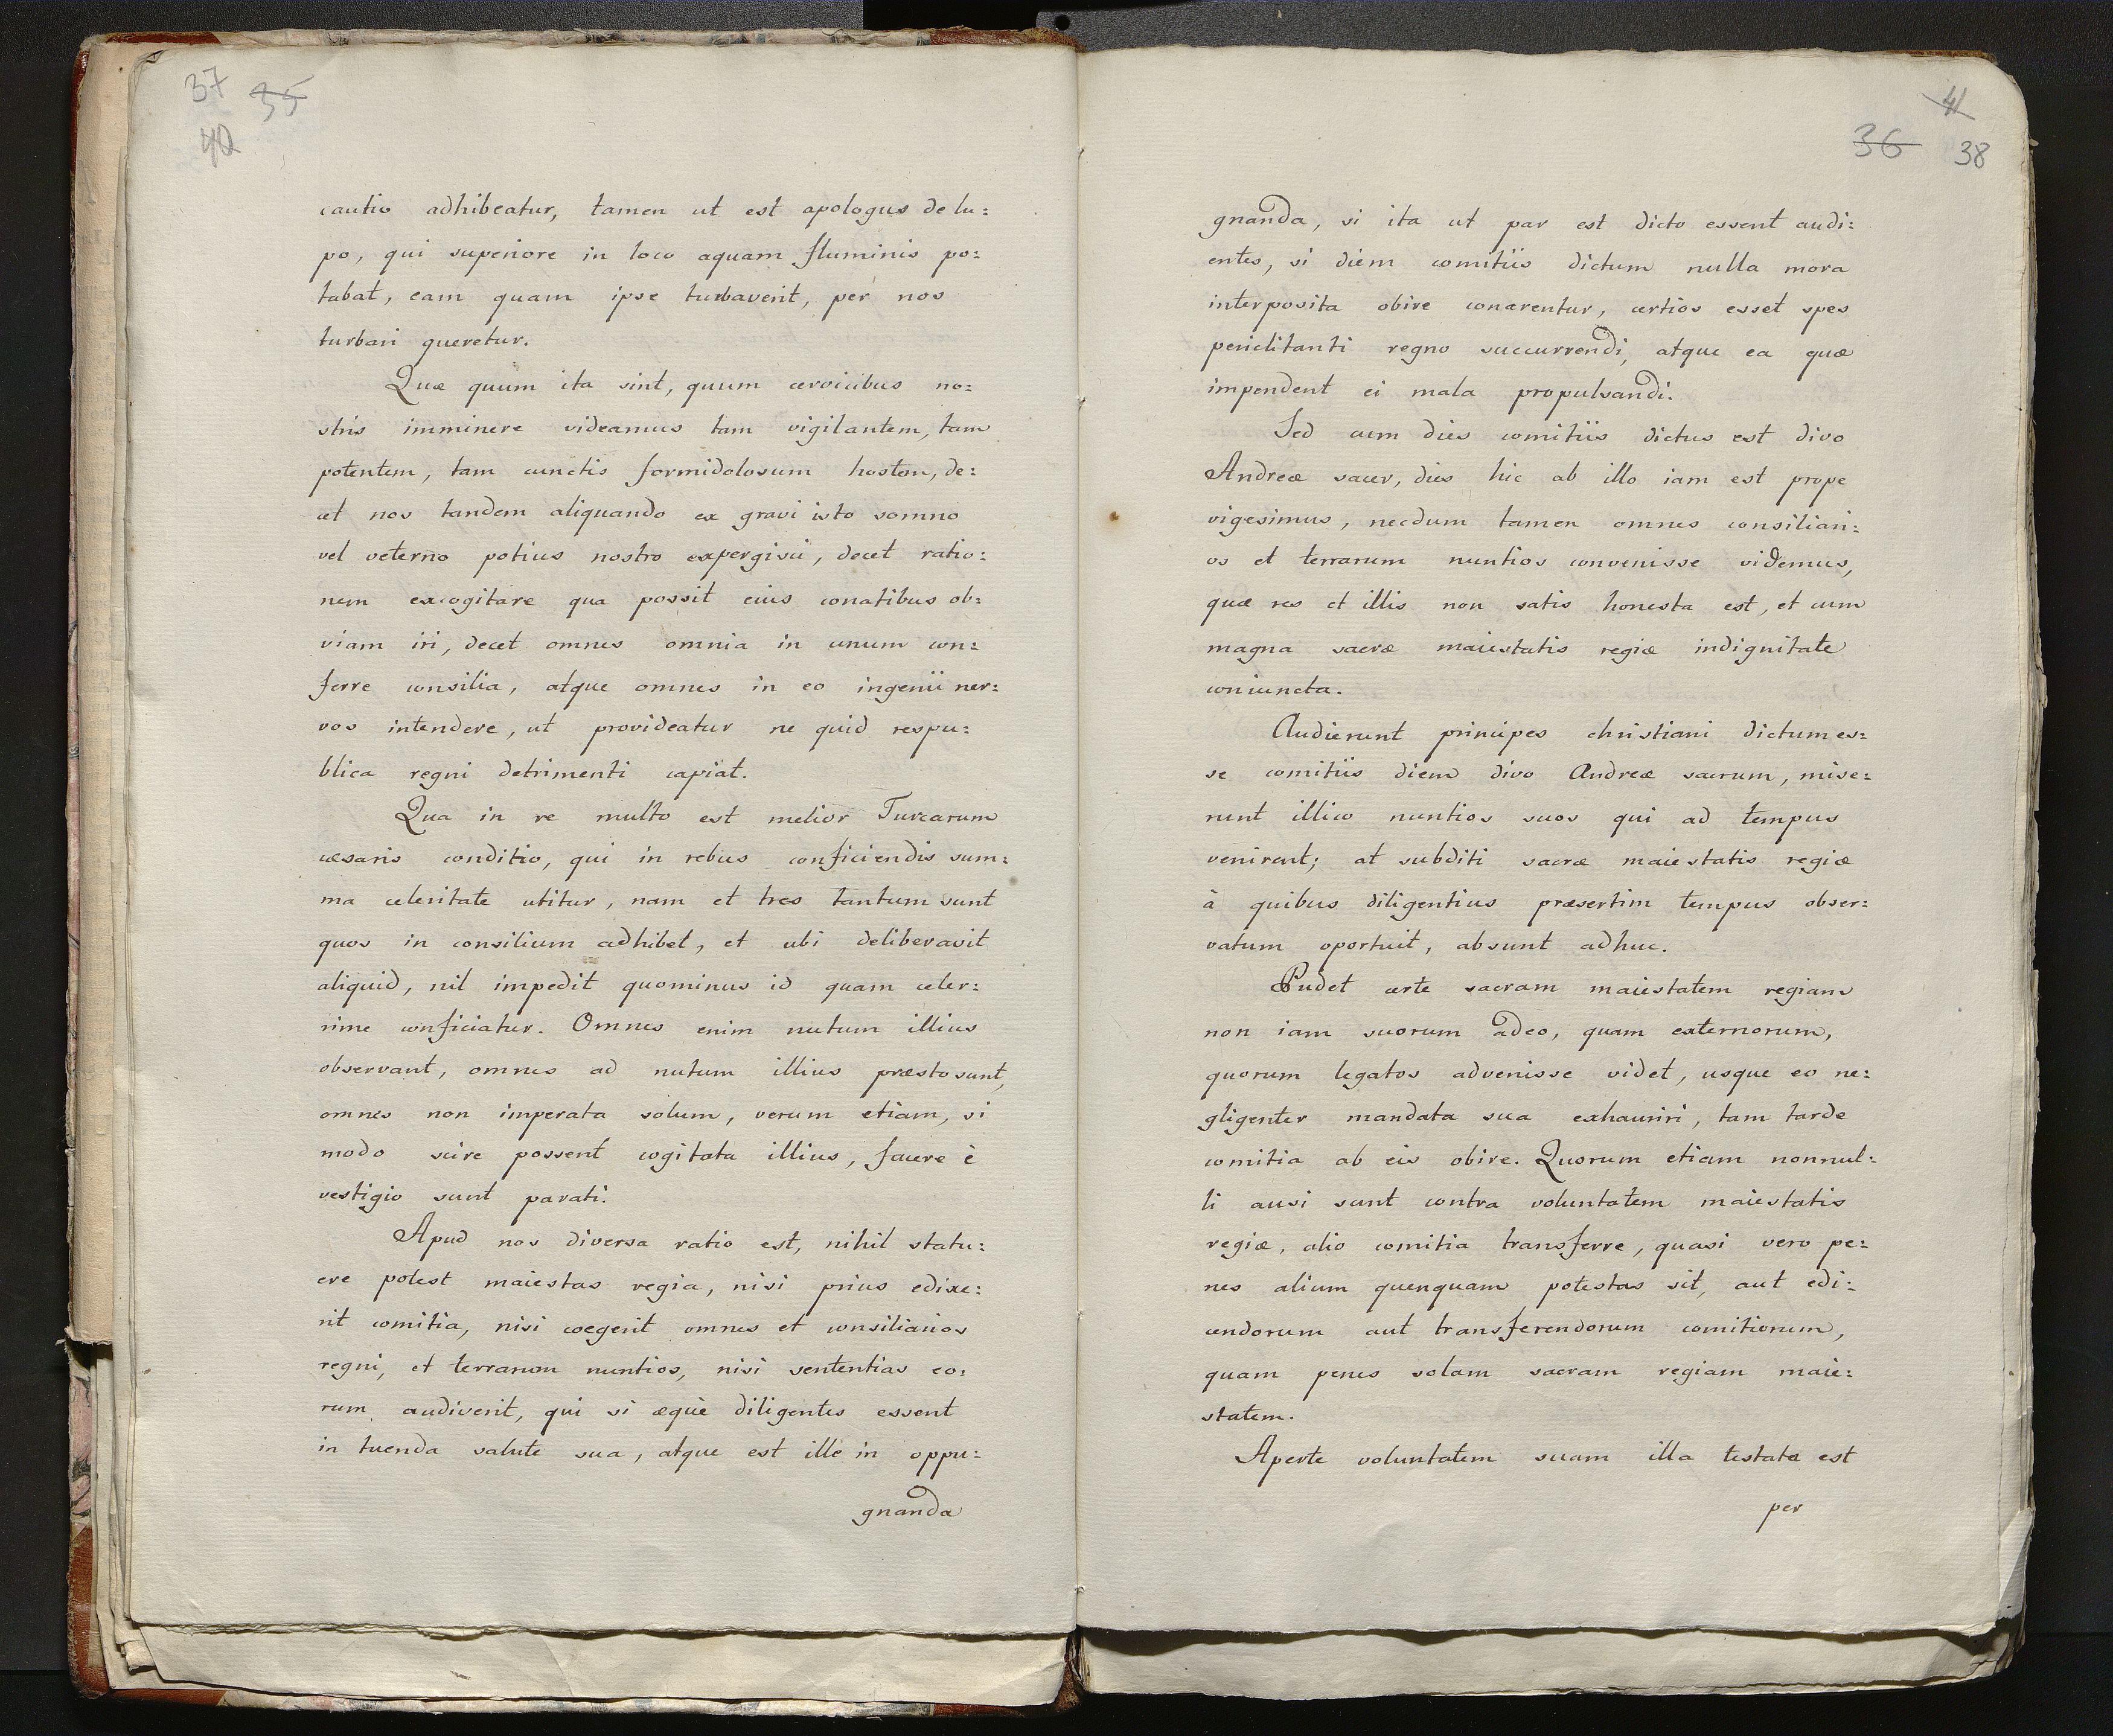 37 35
40
cautio adhibeatur, tamen ut est apologus de lu:
po, qui superiore in loco aquam fluminis po:
tabat, eam quam ipse turbaverit, per nos
turbari queretur.
Quæ quum ita sint, quum cervicibus no:
stris imminere videamus tam vigilantem, tam
potentem, tam cunctis formidolosum hostem, de:
cet nos tandem aliquando ex gravi isto somno
vel veterno potius nostro expergisci, decet ratio:
nem excogitare qua possit eius conatibus ob:
viam iri, decet omnes omnia in unum con:
ferre consilia, atque omnes in eo ingenii ner:
vos intendere, ut provideatur ne quid respu:
blica regni detrimenti capiat.
Qua in re multo est melior Turcarum
cæsaris conditio, qui in rebus conficiendis sum:
ma celeritate utitur, nam et tres tantum sunt
quos in consilium adhibet, et ubi deliberavit
aliquid, nil impedit quominus id quam celer:
rime conficiatur. Omnes enim nutum illius
observant, omnes ad nutum illius præsto sunt,
omnes non imperata solum, verum etiam, si
modo scire possent cogitata illius, facere è
vestigio sunt parati.
Apud nos diversa ratio est, nihil statu:
ere potest maiestas regia, nisi prius edixe:
rit comitia, nisi coegerit omnes et consiliarios
regni, et terrarum nuntios, nisi sententias eo:
rum audiverit, qui si æquè diligentes essent
in tuenda salute sua, atque est ille in oppu:
gnanda
41
36 38
gnanda, si ita ut par est dicto essent audi:
entes, si diem comitiis dictum nulla mora
interposita obire conarentur, certios esset spes
periclitanti regno succurrendi, atque ea quæ
impendent ei mala propulsandi.
Sed cum dies comitiis dictus est divo
Andreæ sacer, dies hic ab illo iam est prope
vigesimus, necdum tamen omnes consiliari:
os et terrarum nuntios convenisse videmus,
quæ res et illis non satis honesta est, et cum
magna sacræ maiestatis regiæ indignitate
coniuncta.
Audierunt principes christiani dictum es:
se comitiis diem divo Andreæ sacrum, mise:
runt illico nuntios suos qui ad tempus
venirent; at subditi sacræ maiestatis regiæ
à quibus diligentius præsertim tempus obser:
vatum oportuit, absunt adhuc.
Pudet certe sacram maiestatem regiam
non iam suorum adeo, quam externorum,
quorum legatos advenisse videt, usque eo ne:
gligenter mandata sua exhauriri, tam tarde
comitia ab eis obire. Quorum etiam nonnul:
li ausi sunt contra voluntatem maiestatis
regiæ, alio comitia transferre, quasi vero pe:
nes alium quenquam potestas sit, aut edi:
cendorum aut transferendorum comitiorum,
quam penes solam sacram regiam maie:
statem.
Aperte voluntatem suam illa testata est
per